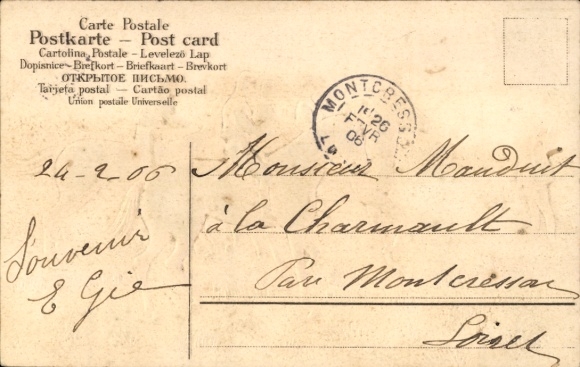 Carte Postale
Postkarte – Post card
Cartolina Postale - Levelező Lap
Dopisnice - Brefkort - Briefkaart - Brevkort
ОТКРЫТОЕ ПИСЬМО.
Tarjeta postal – Cartão postal
Union postale Universelle
MONTCRESSON
26
FEVR
06
24-2-06
Souvenir
E Gié
Monsieur Mauduit
à la Charmault
Par Montcresson
Loiret